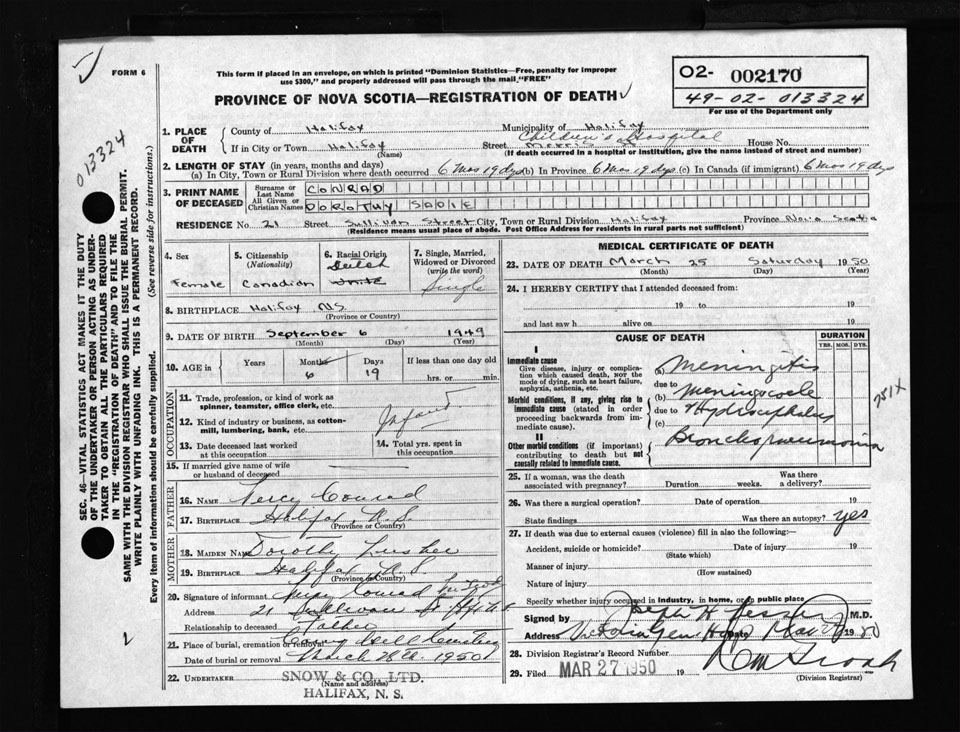 FORM 6
This form if placed in an envelope, on which is printed "Dominion Statistics—Free, penalty for improper
use $300," and properly addressed will pass through the mail "FREE"
PROVINCE OF NOVA SCOTIA—REGISTRATION OF DEATH
02- 002170
49-02-013324
For use of the Department only
013324
SEC. 46—VITAL STATISTICS ACT MAKES IT THE DUTY
OF THE UNDERTAKER OR PERSON ACTING AS UNDER-
TAKER TO OBTAIN ALL THE PARTICULARS REQUIRED
IN THE "REGISTRATION OF DEATH" AND TO FILE THE
SAME WITH THE DIVISION REGISTRAR WHO SHALL ISSUE THE BURIAL PERMIT.
WRITE PLAINLY WITH UNFADING INK. THIS IS A PERMANENT RECORD.
Every item of information should be carefully supplied. (See reverse side for instructions.)
1. PLACE OF DEATH
County of Halifax Municipality of Halifax
Children's Hospital
If in City or Town Halifax Street House No.
(Name) (If death occurred in a hospital or institution, give the name instead of street and number)
2. LENGTH OF STAY (in years, months and days)
(a) In City, Town or Rural Division where death occurred 6 Mos 19 dys (b) In Province 6 Mos 19 dys (c) In Canada (if immigrant) 6 Mos 19 dys
3. PRINT NAME OF DECEASED
Surname or Last Name CONRAD
All Given or Christian Names DOROTHY SADIE
RESIDENCE No. 21 Street Sullivan Street City, Town or Rural Division Halifax Province Nova Scotia
(Residence means usual place of abode. Post Office Address for residents in rural parts not sufficient)
4. Sex Female
5. Citizenship (Nationality) Canadian
6. Racial Origin Dutch White
7. Single, Married, Widowed or Divorced (write the word) Single
8. BIRTHPLACE Halifax N.S.
(Province or Country)
9. DATE OF BIRTH September 6 1949
(Month) (Day) (Year)
10. AGE in Years Months 6 Days 19 If less than one day old hrs. or min.
OCCUPATION
11. Trade, profession, or kind of work as spinner, teamster, office clerk, etc.
12. Kind of industry or business, as cotton-mill, lumbering, bank, etc. Infant
13. Date deceased last worked at this occupation
14. Total yrs. spent in this occupation
15. If married give name of wife or husband of deceased
FATHER
16. NAME Percy Conrad
17. BIRTHPLACE Halifax, N.S.
(Province or Country)
MOTHER
18. MAIDEN NAME Dorothy
19. BIRTHPLACE Halifax N.S.
(Province or Country)
20. Signature of informant Percy Conrad
Address 21 Sullivan St
Relationship to deceased Father
21. Place of burial, cremation or removal Hill Cemetery
Date of burial or removal March 28th. 1950
22. UNDERTAKER SNOW & CO., LTD.
(Name and address)
HALIFAX, N. S.
MEDICAL CERTIFICATE OF DEATH
23. DATE OF DEATH March 25 Saturday 1950
(Month) (Day) (Year)
24. I HEREBY CERTIFY that I attended deceased from:
19 to 19
and last saw h alive on 19
CAUSE OF DEATH
DURATION
YRS. MOS. DYS.
I
Immediate cause
Give disease, injury or complication which caused death, not the mode of dying, such as heart failure, asphyxia, asthenia, etc.
(a) Meningitis
due to
Morbid conditions, if any, giving rise to immediate cause (stated in order proceeding backwards from immediate cause).
(b) Meningocele
due to
(c) Hydrocephalus
751X
II
Other morbid conditions (if important) contributing to death but not causally related to immediate cause.
Bronchopneumonia
25. If a woman, was the death associated with pregnancy? Duration weeks. Was there a delivery?
26. Was there a surgical operation? Date of operation 19
State findings Was there an autopsy? yes
27. If death was due to external causes (violence) fill in also the following:—
Accident, suicide or homicide? Date of injury 19
(State which)
Manner of injury
(How sustained)
Nature of injury
Specify whether injury occurred in industry, in home, or in public place
Signed by Joseph H M.D.
Address Victoria Gen Hosp Date 1950
28. Division Registrar's Record Number
29. Filed MAR 27 1950 19
(Division Registrar)